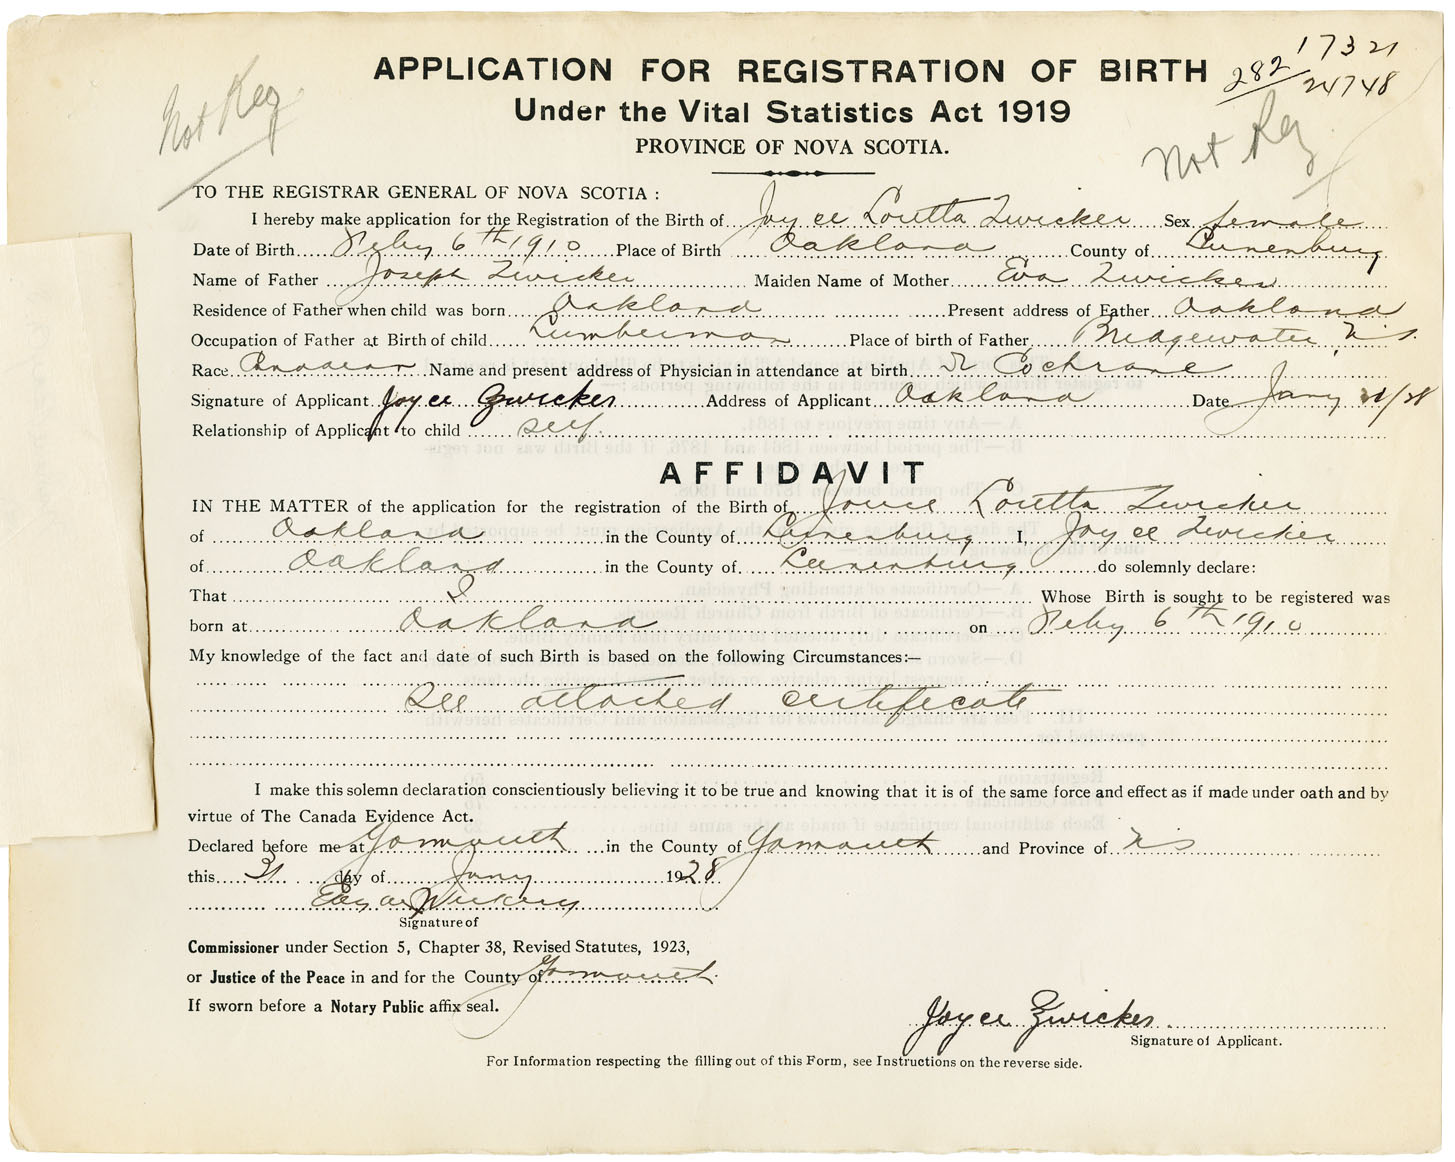 17321
282/24748
Not Reg
APPLICATION FOR REGISTRATION OF BIRTH
Under the Vital Statistics Act 1919
PROVINCE OF NOVA SCOTIA.
Not Reg
TO THE REGISTRAR GENERAL OF NOVA SCOTIA :
I hereby make application for the Registration of the Birth of Joyce Loretta Zwicker Sex female
Date of Birth Feby 6th 1910 Place of Birth Oakland County of Lunenburg
Name of Father Joseph Zwicker Maiden Name of Mother Eva Zwicker
Residence of Father when child was born Oakland Present address of Father Oakland
Occupation of Father at Birth of child Lumberman Place of birth of Father Bridgewater, N.S.
Race Canadian Name and present address of Physician in attendance at birth Dr Cochrane
Signature of Applicant Joyce Zwicker Address of Applicant Oakland Date Jany 31/28
Relationship of Applicant to child self.
AFFIDAVIT
IN THE MATTER of the application for the registration of the Birth of Joyce Loretta Zwicker
of Oakland in the County of Lunenburg I, Joyce Zwicker
of Oakland in the County of Lunenburg do solemnly declare:
That I Whose Birth is sought to be registered was
born at Oakland on Feby 6th 1910
My knowledge of the fact and date of such Birth is based on the following Circumstances:—
See attached certificate
I make this solemn declaration conscientiously believing it to be true and knowing that it is of the same force and effect as if made under oath and by
virtue of The Canada Evidence Act.
Declared before me at Yarmouth in the County of Yarmouth and Province of N S
this 31 day of Jany 1928
Signature of
Commissioner under Section 5, Chapter 38, Revised Statutes, 1923,
or Justice of the Peace in and for the County of Yarmouth
If sworn before a Notary Public affix seal.
Joyce Zwicker
Signature of Applicant.
For Information respecting the filling out of this Form, see Instructions on the reverse side.